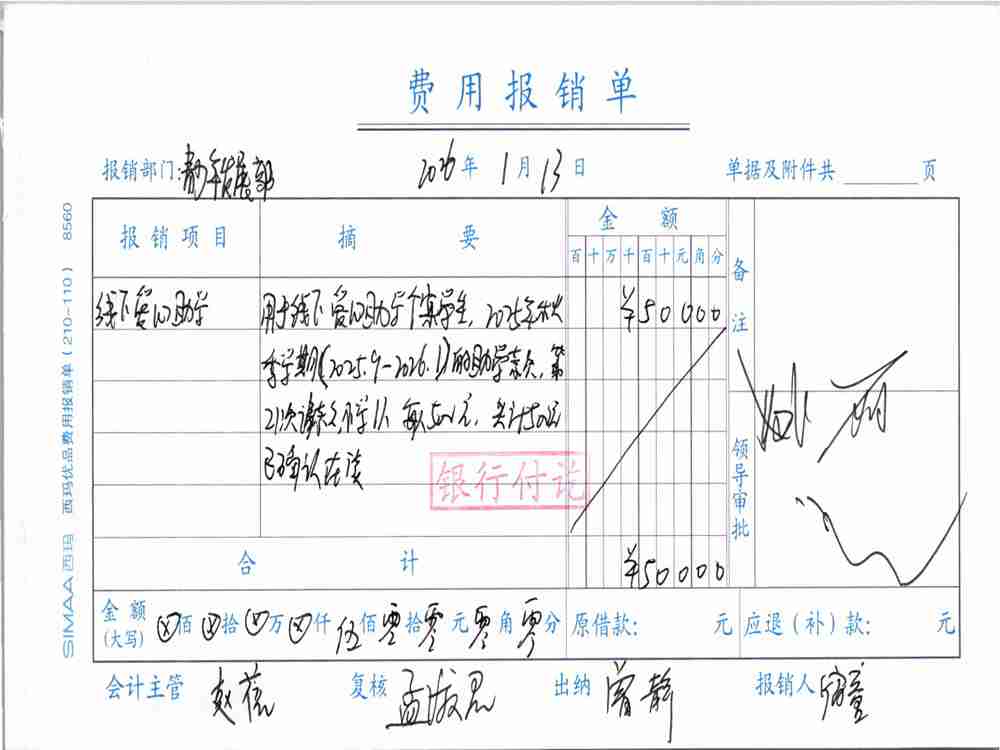 费用报销单
报销部门:青少年发展部 2026年1月13日 单据及附件共 页
SIMAA西玛 西玛优品费用报销单(210-110) 8560
报销项目 摘要 金额 备注
百十万千百十元角分
线下爱心助学 用于线下爱心助学个案学生,2025年秋 ¥50000
季学期(2025.9-2026.1)的助学款,第
21次 小学1人 每人500元,共计500元
已 确认在读
银行付讫
领导审批
合计 ¥50000
金额(大写) ⊗佰⊗拾⊗万⊗仟伍佰零拾零元零角零分 原借款: 元 应退(补)款: 元
会计主管 赵蓓 复核 孟淑君 出纳 曾静 报销人